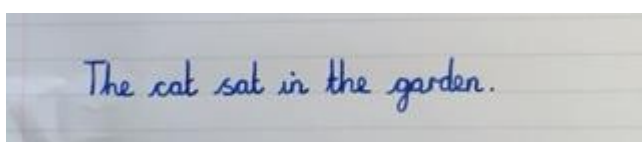 The cat sat in the garden.